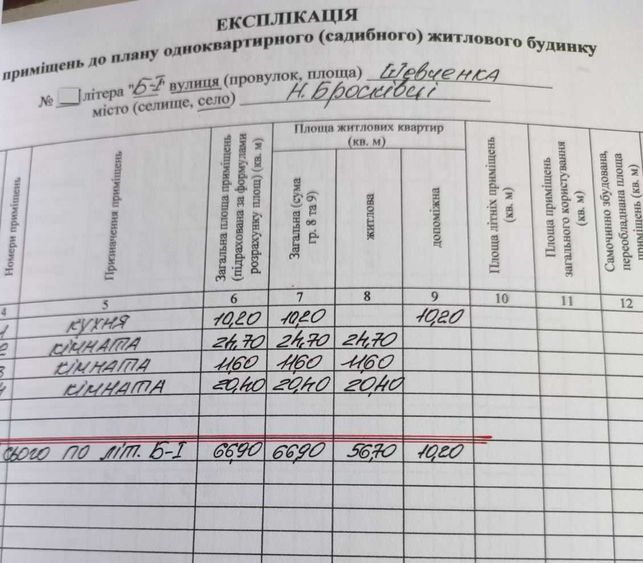 ЕКСПЛІКАЦІЯ
приміщень до плану одноквартирного (садибного) житлового будинку
№ літера "Б-І" вулиця (провулок, площа) Шевченка
місто (селище, село) Н. Бросківці
Номери приміщень
Призначення приміщень
Загальна площа приміщень (підрахована за формулами розрахунку площ) (кв. м)
Площа житлових квартир
(кв. м)
Загальна (сума гр. 8 та 9)
житлова
допоміжна
Площа літніх приміщень (кв. м)
Площа приміщень загального користування (кв. м)
Самочинно збудована, переобладнана площа приміщень (кв. м)
4 5 6 7 8 9 10 11 12
1 кухня 10,20 10,20 10,20
2 кімната 24,70 24,70 24,70
3 кімната 11,60 11,60 11,60
4 кімната 20,40 20,40 20,40
сього по літ. Б-І 66,90 66,90 56,70 10,20